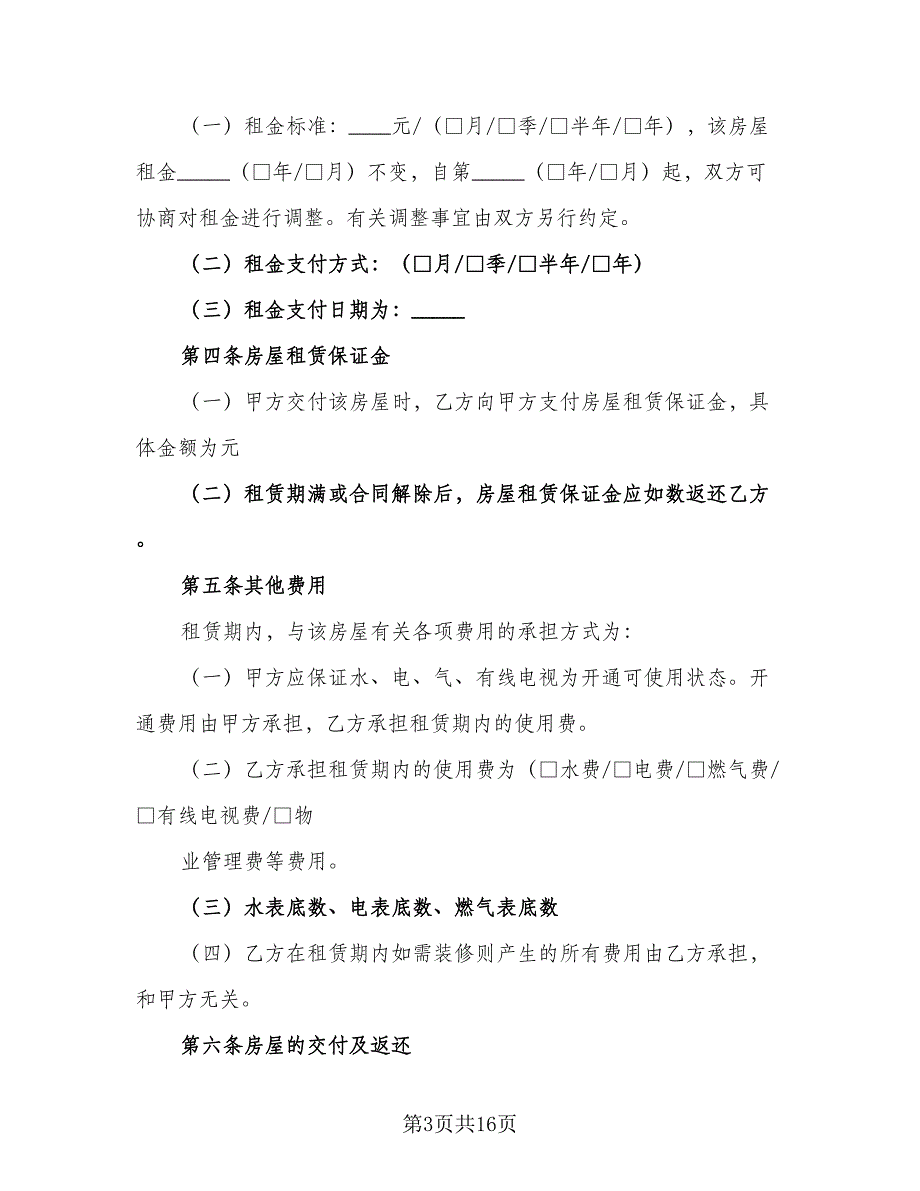 （一）租金标准：____元/（□月/□季/□半年/□年），该房屋
租金_____（□年/□月）不变，自第_____（□年/□月）起，双方可
协商对租金进行调整。有关调整事宜由双方另行约定。
（二）租金支付方式：（□月/□季/□半年/□年）
（三）租金支付日期为：_____
第四条房屋租赁保证金
（一）甲方交付该房屋时，乙方向甲方支付房屋租赁保证金，具
体金额为元
（二）租赁期满或合同解除后，房屋租赁保证金应如数返还乙方
。
第五条其他费用
租赁期内，与该房屋有关各项费用的承担方式为：
（一）甲方应保证水、电、气、有线电视为开通可使用状态。开
通费用由甲方承担，乙方承担租赁期内的使用费。
（二）乙方承担租赁期内的使用费为（□水费/□电费/□燃气费/
□有线电视费/□物
业管理费等费用。
（三）水表底数、电表底数、燃气表底数
（四）乙方在租赁期内如需装修则产生的所有费用由乙方承担，
和甲方无关。
第六条房屋的交付及返还
第3页共16页